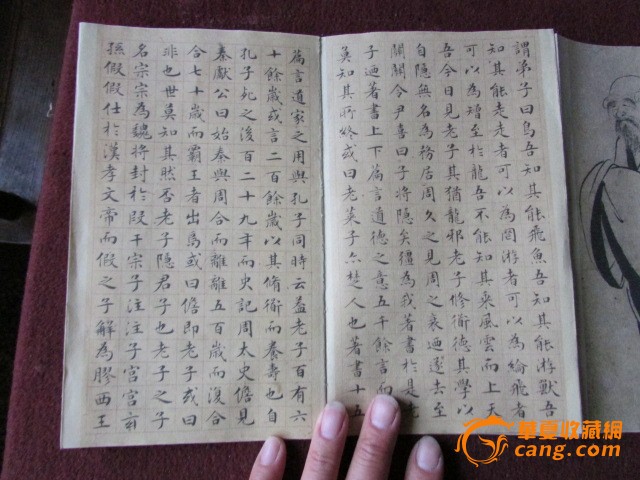 謂弟子曰鳥吾知其能飛魚吾知其能游獸吾
知其能走走者可以為罔游者可以為綸飛者
可以為矰至於龍吾不能知其乘風雲而上天
吾今日見老子其猶龍邪老子修道德其學以
自隱無名為務居周久之見周之衰迺遂去至
關關令尹喜曰子將隱矣彊為我著書於是老
子迺著書上下篇言道德之意五千餘言而
莫知其所終或曰老萊子亦楚人也著書十五
篇言道家之用與孔子同時云蓋老子百有六
十餘歲或言二百餘歲以其脩道而養壽也自
孔子死之後百二十九年而史記周太史儋見
秦獻公曰始秦與周合而離離五百歲而復合
合七十歲而霸王者出焉或曰儋即老子或曰
非也世莫知其然否老子隱君子也老子之子
名宗宗為魏將封於段干宗子注注子宮宮玄
孫假假仕於漢孝文帝而假之子解為膠西王
華夏收藏網
cang.com